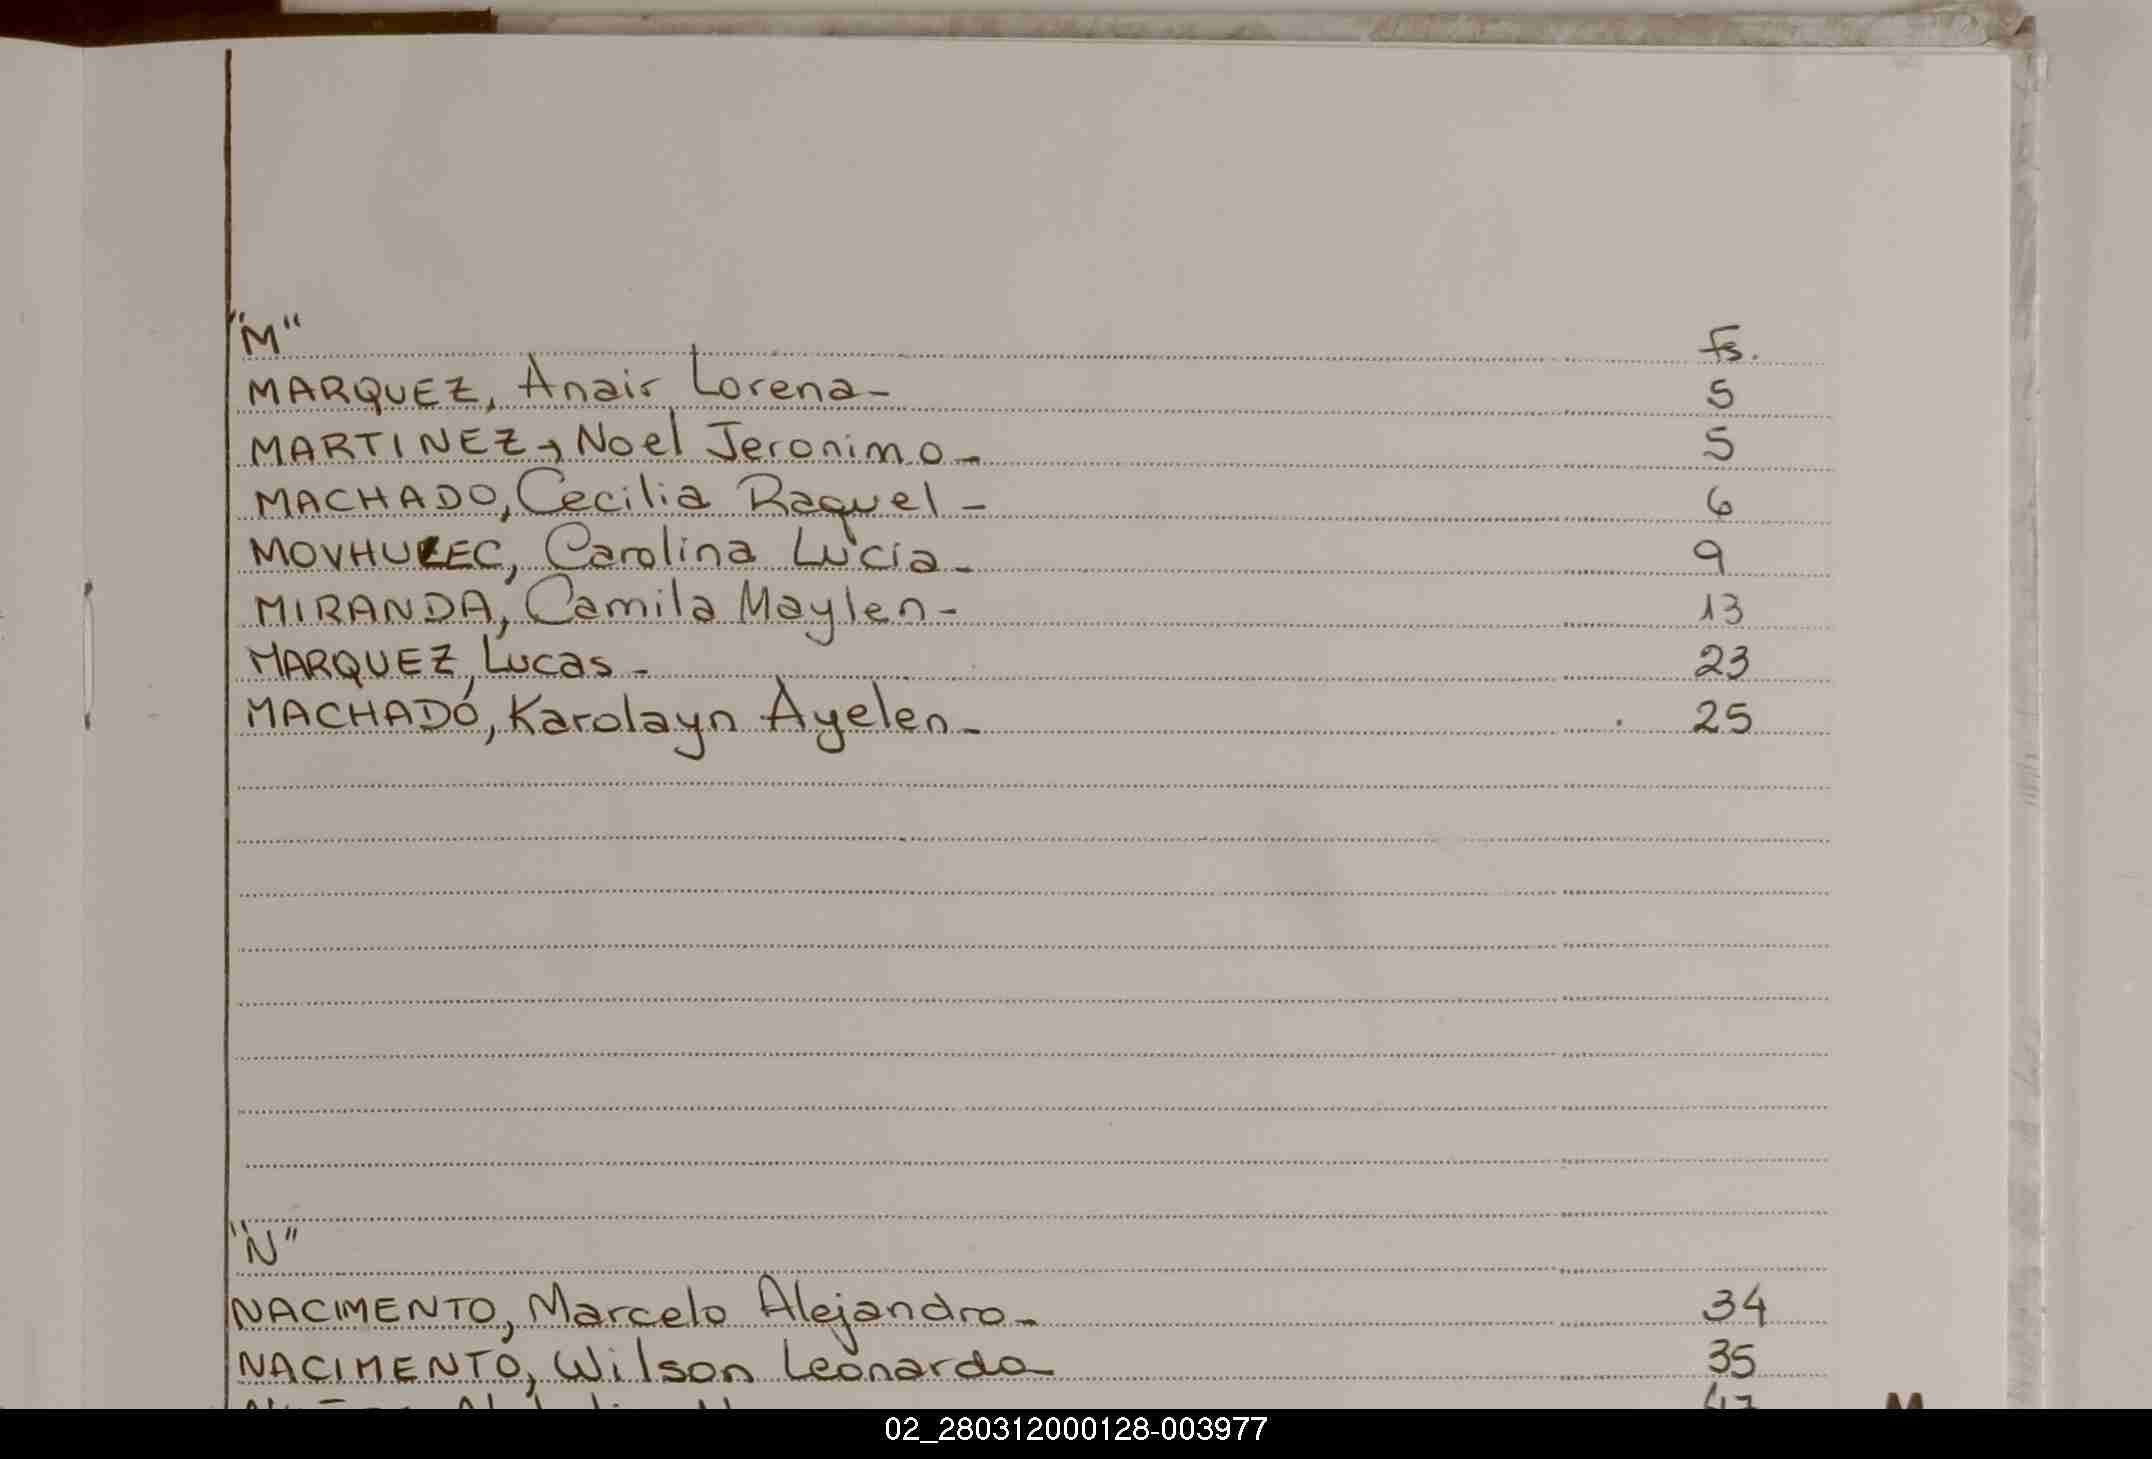 "M" fs.
MARQUEZ, Anair Lorena- 5
MARTINEZ-, Noel Jeronimo- 5
MACHADO, Cecilia Raquel- 6
Carolina Lucía- 9
MIRANDA, Camila Maylen- 13
MARQUEZ, Lucas- 23
MACHADO, Karolayn Ayelen- 25
"N"
NACIMENTO, Marcelo Alejandro- 34
NACIMENTO, Wilson Leonardo- 35
M
02_280312000128-003977